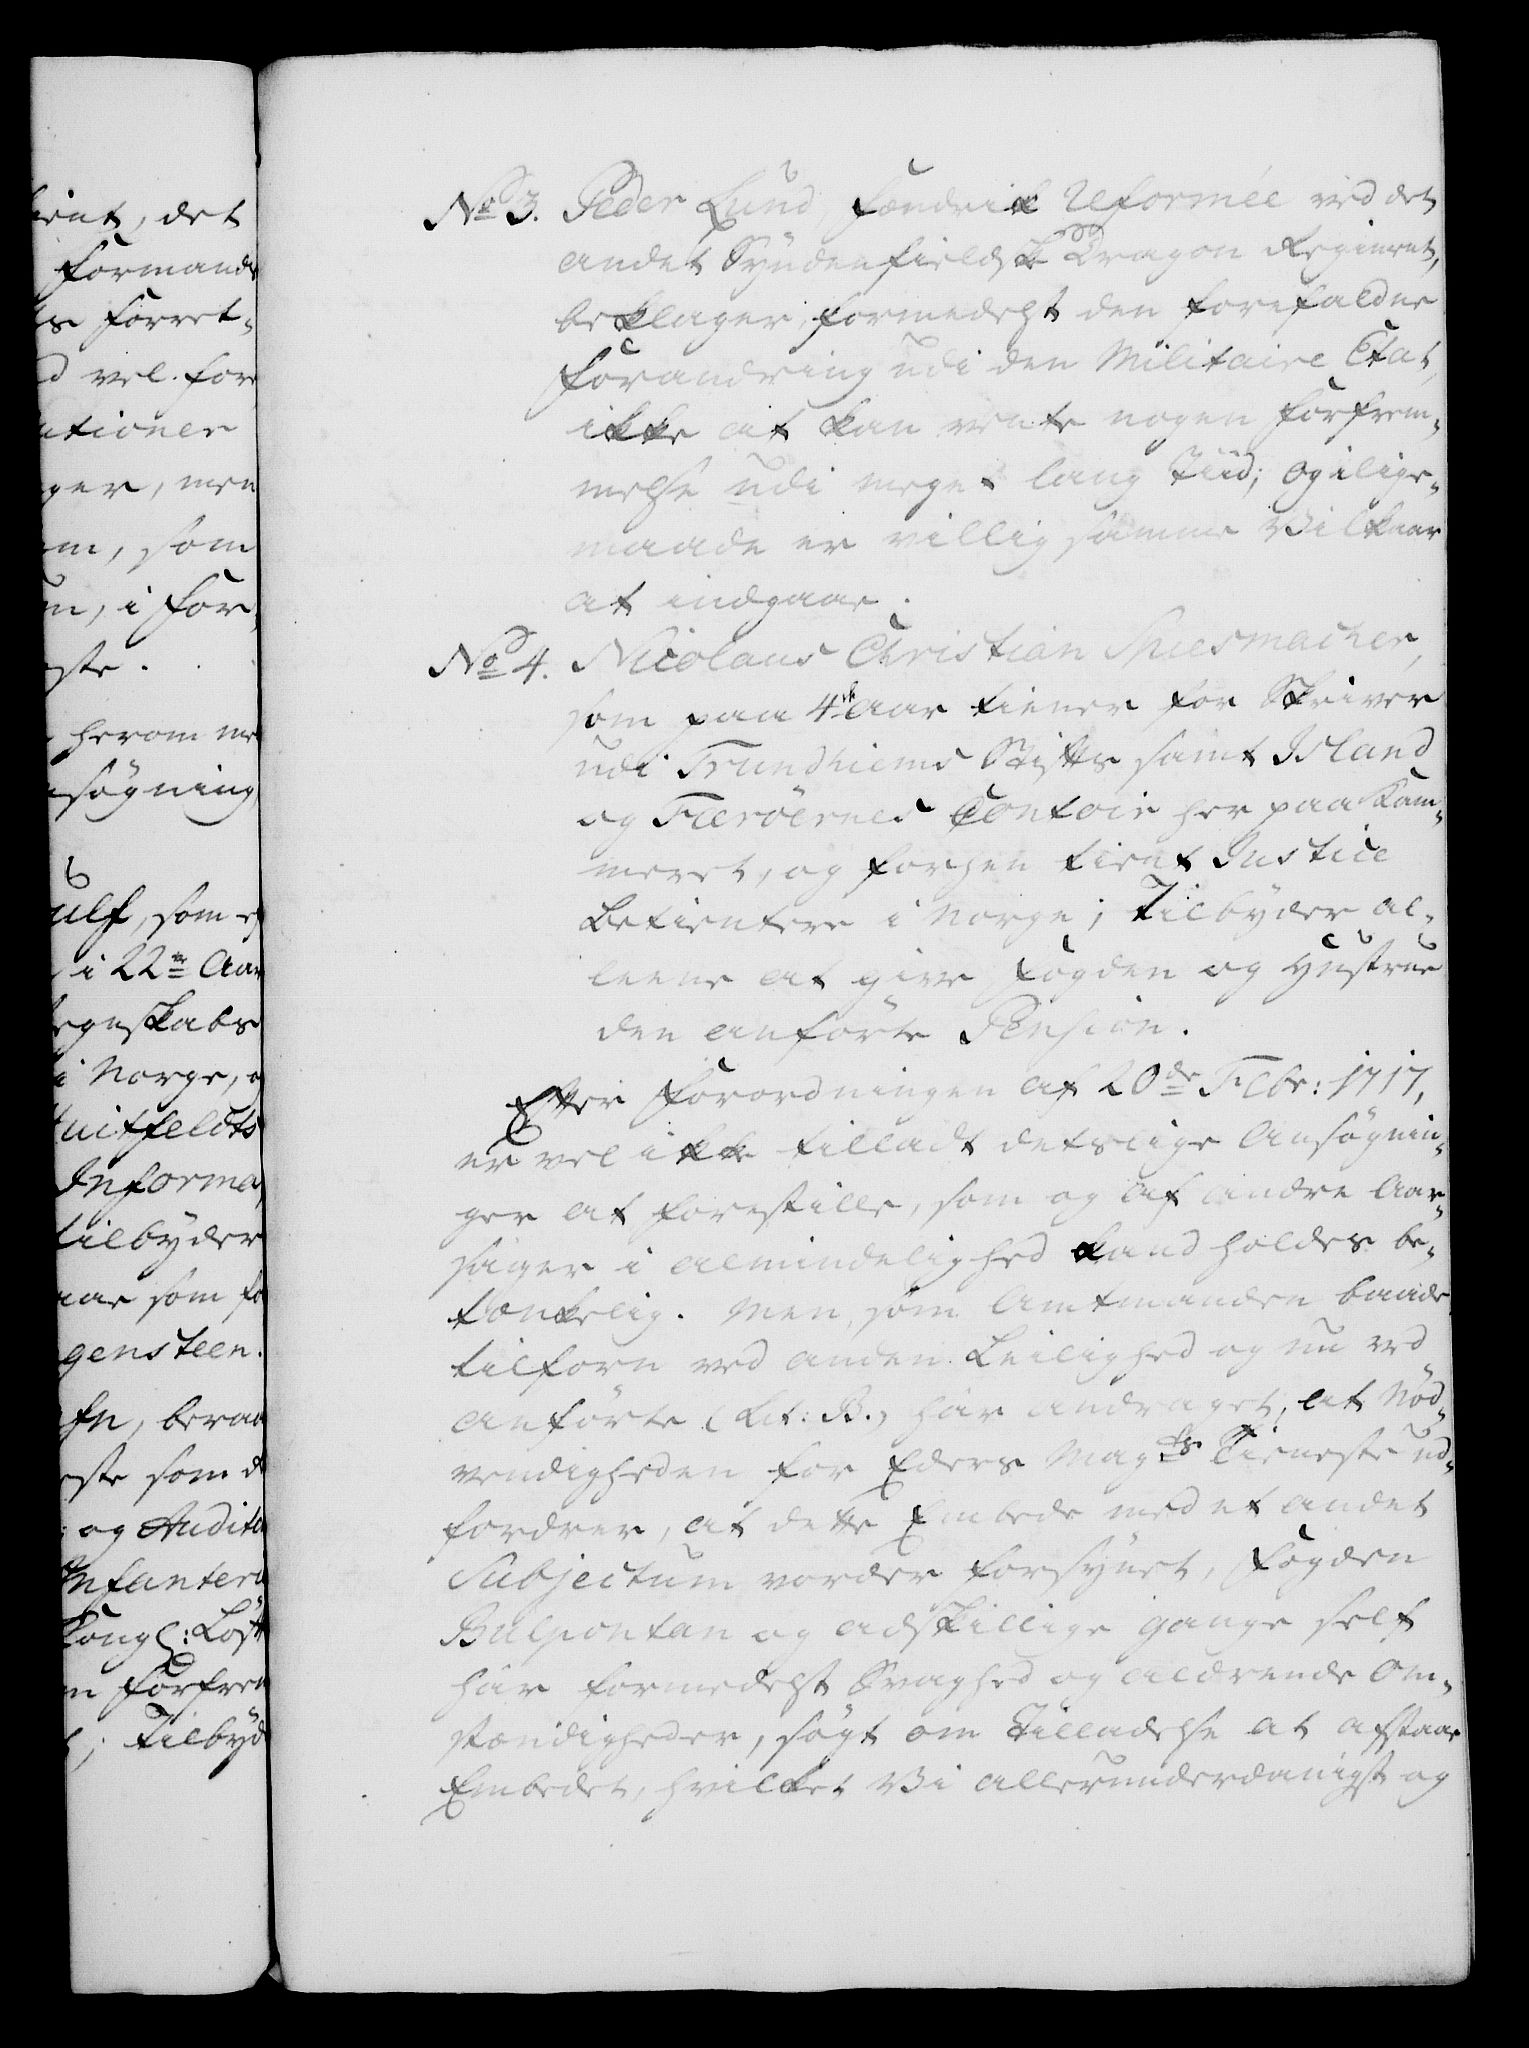 ient, det
Formands
ts forret-
d vel. for
utioner
ger, men
om, som
m, i for,
ste.
herom me
nsøgning
ulf, som
i 22de Aar
egnskabs
i Norge, o
Huitfeldts
Informa,
tilbyder
aae som fo
gensteen.
afn, beraa
este som d
og Audite
Infanteri
Kongl: Løft
n forfrem
; tilbyd
No 3. Peder Lund Fændrik Reformée ved det
andet Syndenfieldske Dragon Regiment,
beklager, formedelst den forefaldne
Forandring udi den Militaire Etat,
ikke at kan vente nogen forfrem-
melse udi meget lang Tiid; og i lige-
maade er villig samme Vilkaar
at indgaae.
No 4. Nicolaus Christian Spiesmacher,
som paa 4de Aar tiener for Skriver
udi Trundhiems Stifts samt Island
og Færöernes Contoir her paa Kam-
meret, og forhen tient Justice
Betientere i Norge; Tilbyder al-
leene at give Fogden og Hustrue
den anførte Pension.
Efter Forordningen af 20de Febr: 1717,
er vel ikke tilladt detslige Ansøgnin-
ger at forestille, som og af andre Aar-
sager i almindelighed kand holdes be-
tænkelig. Men, som Amtmanden baade
tilforn ved anden Leilighed og nu ved
anførte Lit: B., har andraget, at Nød-
vendigheden for Eders Mayts Tieneste ud-
fordrer, at dette Embede med et andet
Subjectum vorder forsynet, Fogden
Bulpontan og adskillige gange self
har formedelst Svaghed og aldrende Om-
stændigheder, søgt om Tilladelse at afstaae
Embedet, hvilket Vi allerunderdanigst og